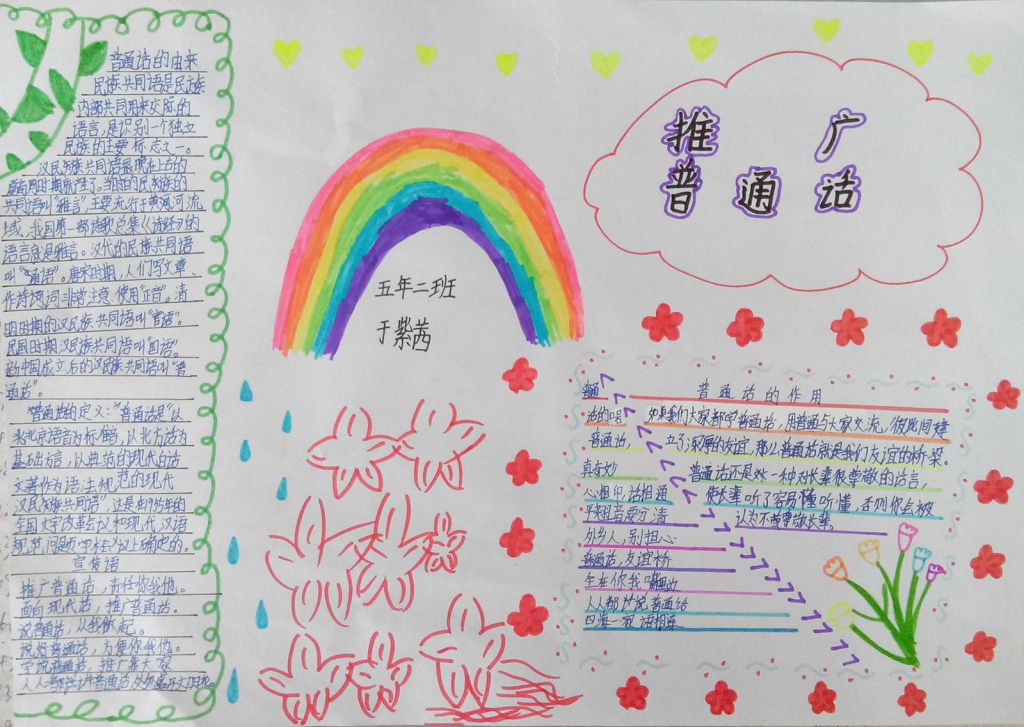 普通话的由来
民族共同语是民族
内部共同用来交际的
语言，是识别一个独立
民族的主要标志之一。
汉民族共同语最晚在上古的
夏商周时期就产生了。当时的民族的
共同语叫“雅言”，主要流行于黄河流
域，我国第一部诗歌总集《诗经》的
语言就是雅言。汉代的民族共同语
叫“通语”。唐宋时期，人们写文章、
作诗词非常注意使用“正音”。清
明时期的汉民族共同语叫“官话”。
民国时期汉民族共同语叫“国语”。
新中国成立后的汉民族共同语叫“普
通话”。
普通话的定义：“普通话是”以
北京语音为标准音，以北方话为
基础方言，以典范的现代白话
文著作为语法规范的现代
汉民族共同语”，这是
全国文字改革会议和现代汉语
规范问题学术会议上确定的。
宣传语
推广普通话，责任你我他。
面向现代话，推广普通话。
说普通话，从我做起。
说好普通话，方便你我他。
学说普通话，推广靠大家
人人都讲普通话
五年二班
于紫茜
推广
普通话
普通话的作用
如果我们大家都学普通话，用普通与大家交流，彼此间建
立了深厚的友谊，那么普通话就是我们友谊的桥梁。
普通话还是对一种对长辈很尊敬的话言，
使长辈听了容易懂听懂，否则你会被
认为不尊敬长辈。
普通
话的
普通话，
真奇妙
心相印，话相通
平翘舌音要分清
外乡人，别担心
普通话，友谊桥
生在你我
人人都说普通话
四海一家